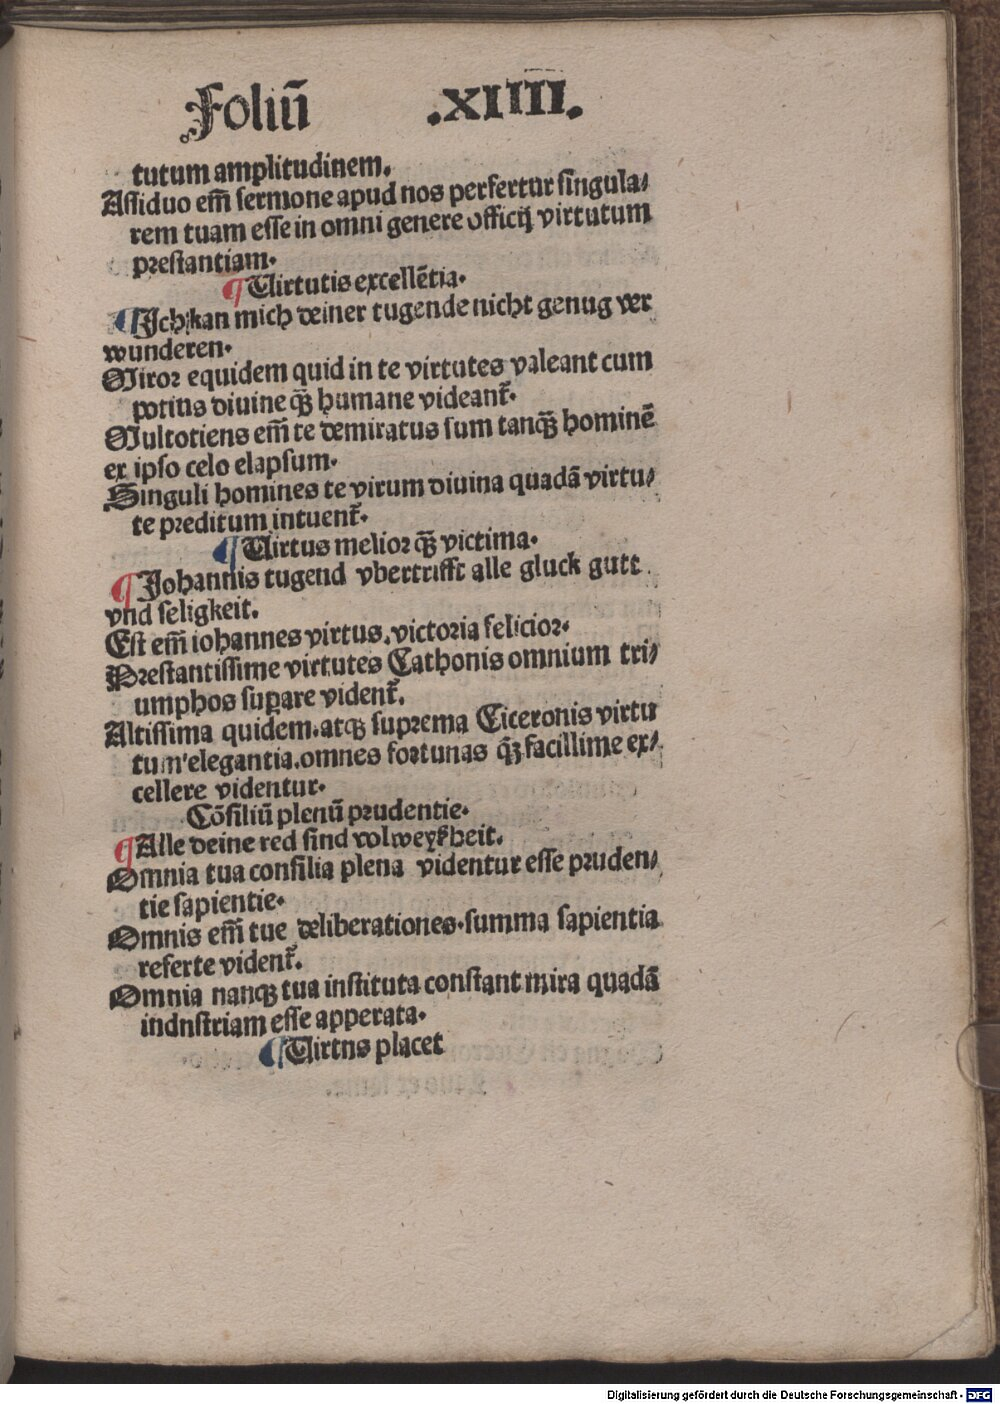 Foliū .XIIII.
tutum amplitudinem.
Assiduo em̄ sermone apud nos perfertur singula⸗
rem tuam esse in omni genere officij virtutum
prestantiam.
¶ Virtutis excellētia.
¶ Ich kan mich deiner tugende nicht genug ver
wunderen.
Miror equidem quid in te virtutes valeant cum
potius diuine qꝫ humane videant᷑.
Multotiens em̄ te demiratus sum tanqꝫ hominē
ex ipso celo elapsum.
Singuli homines te virum diuina quadā virtu⸗
te preditum intuent᷑.
¶ Virtus melior qꝫ victima.
¶ Johannis tugend vbertrifft alle gluck gutt
vnd seligkeit.
Est em̄ iohannes virtus. victoria felicior.
Prestantissime virtutes Cathonis omnium tri⸗
umphos suꝑare vident᷑.
Altissima quidem. atqꝫ suprema Ciceronis virtu
tum elegantia. omnes fortunas qꝫ facillime ex⸗
cellere videntur.
Cōsiliū plenū prudentie.
¶ Alle deine red sind volweyßheit.
Omnia tua consilia plena videntur esse pruden⸗
tie sapientie.
Omnis em̄ tue deliberationes. summa sapientia
referte vident᷑.
Omnia nanqꝫ tua instituta constant mira quadā
indnstriam esse apperata.
¶ Virtns placet
Digitalisierung gefördert durch die Deutsche Forschungsgemeinschaft - DFG